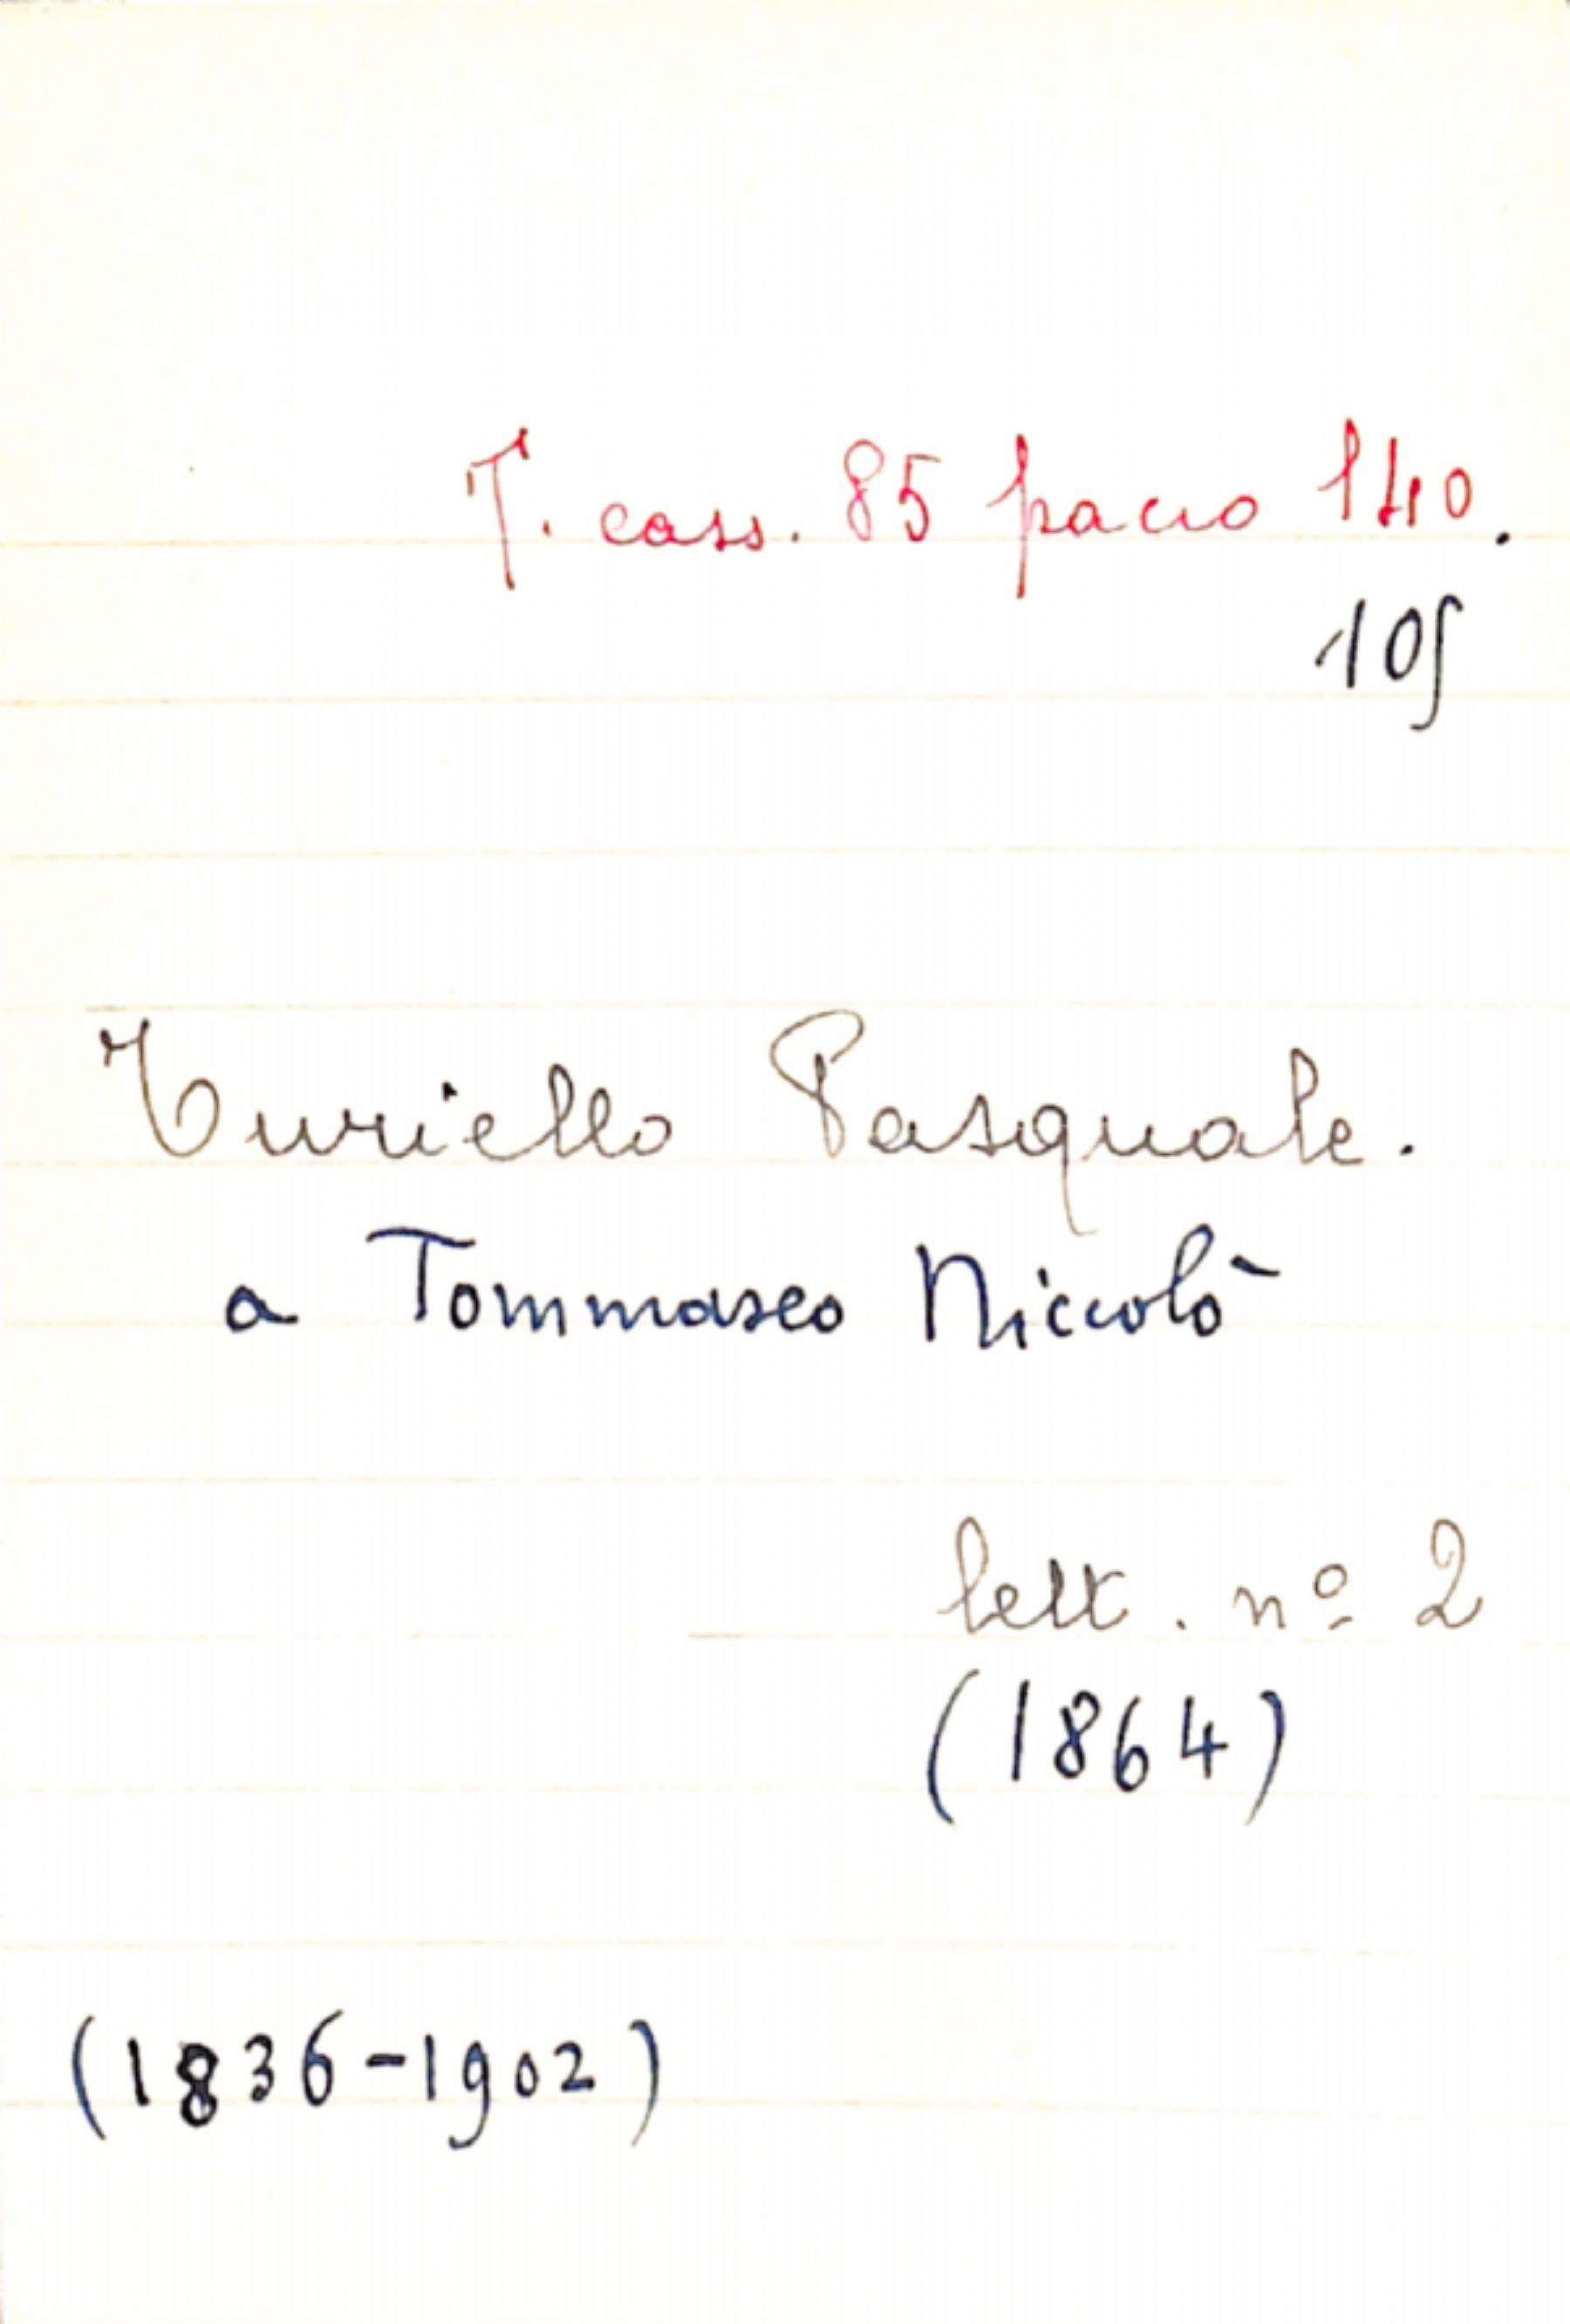 T. cass. 85 pacco 140.
105
Turiello Pasquale.
a Tommaseo Niccolò
lett. nº 2
(1864)
(1836-1902)